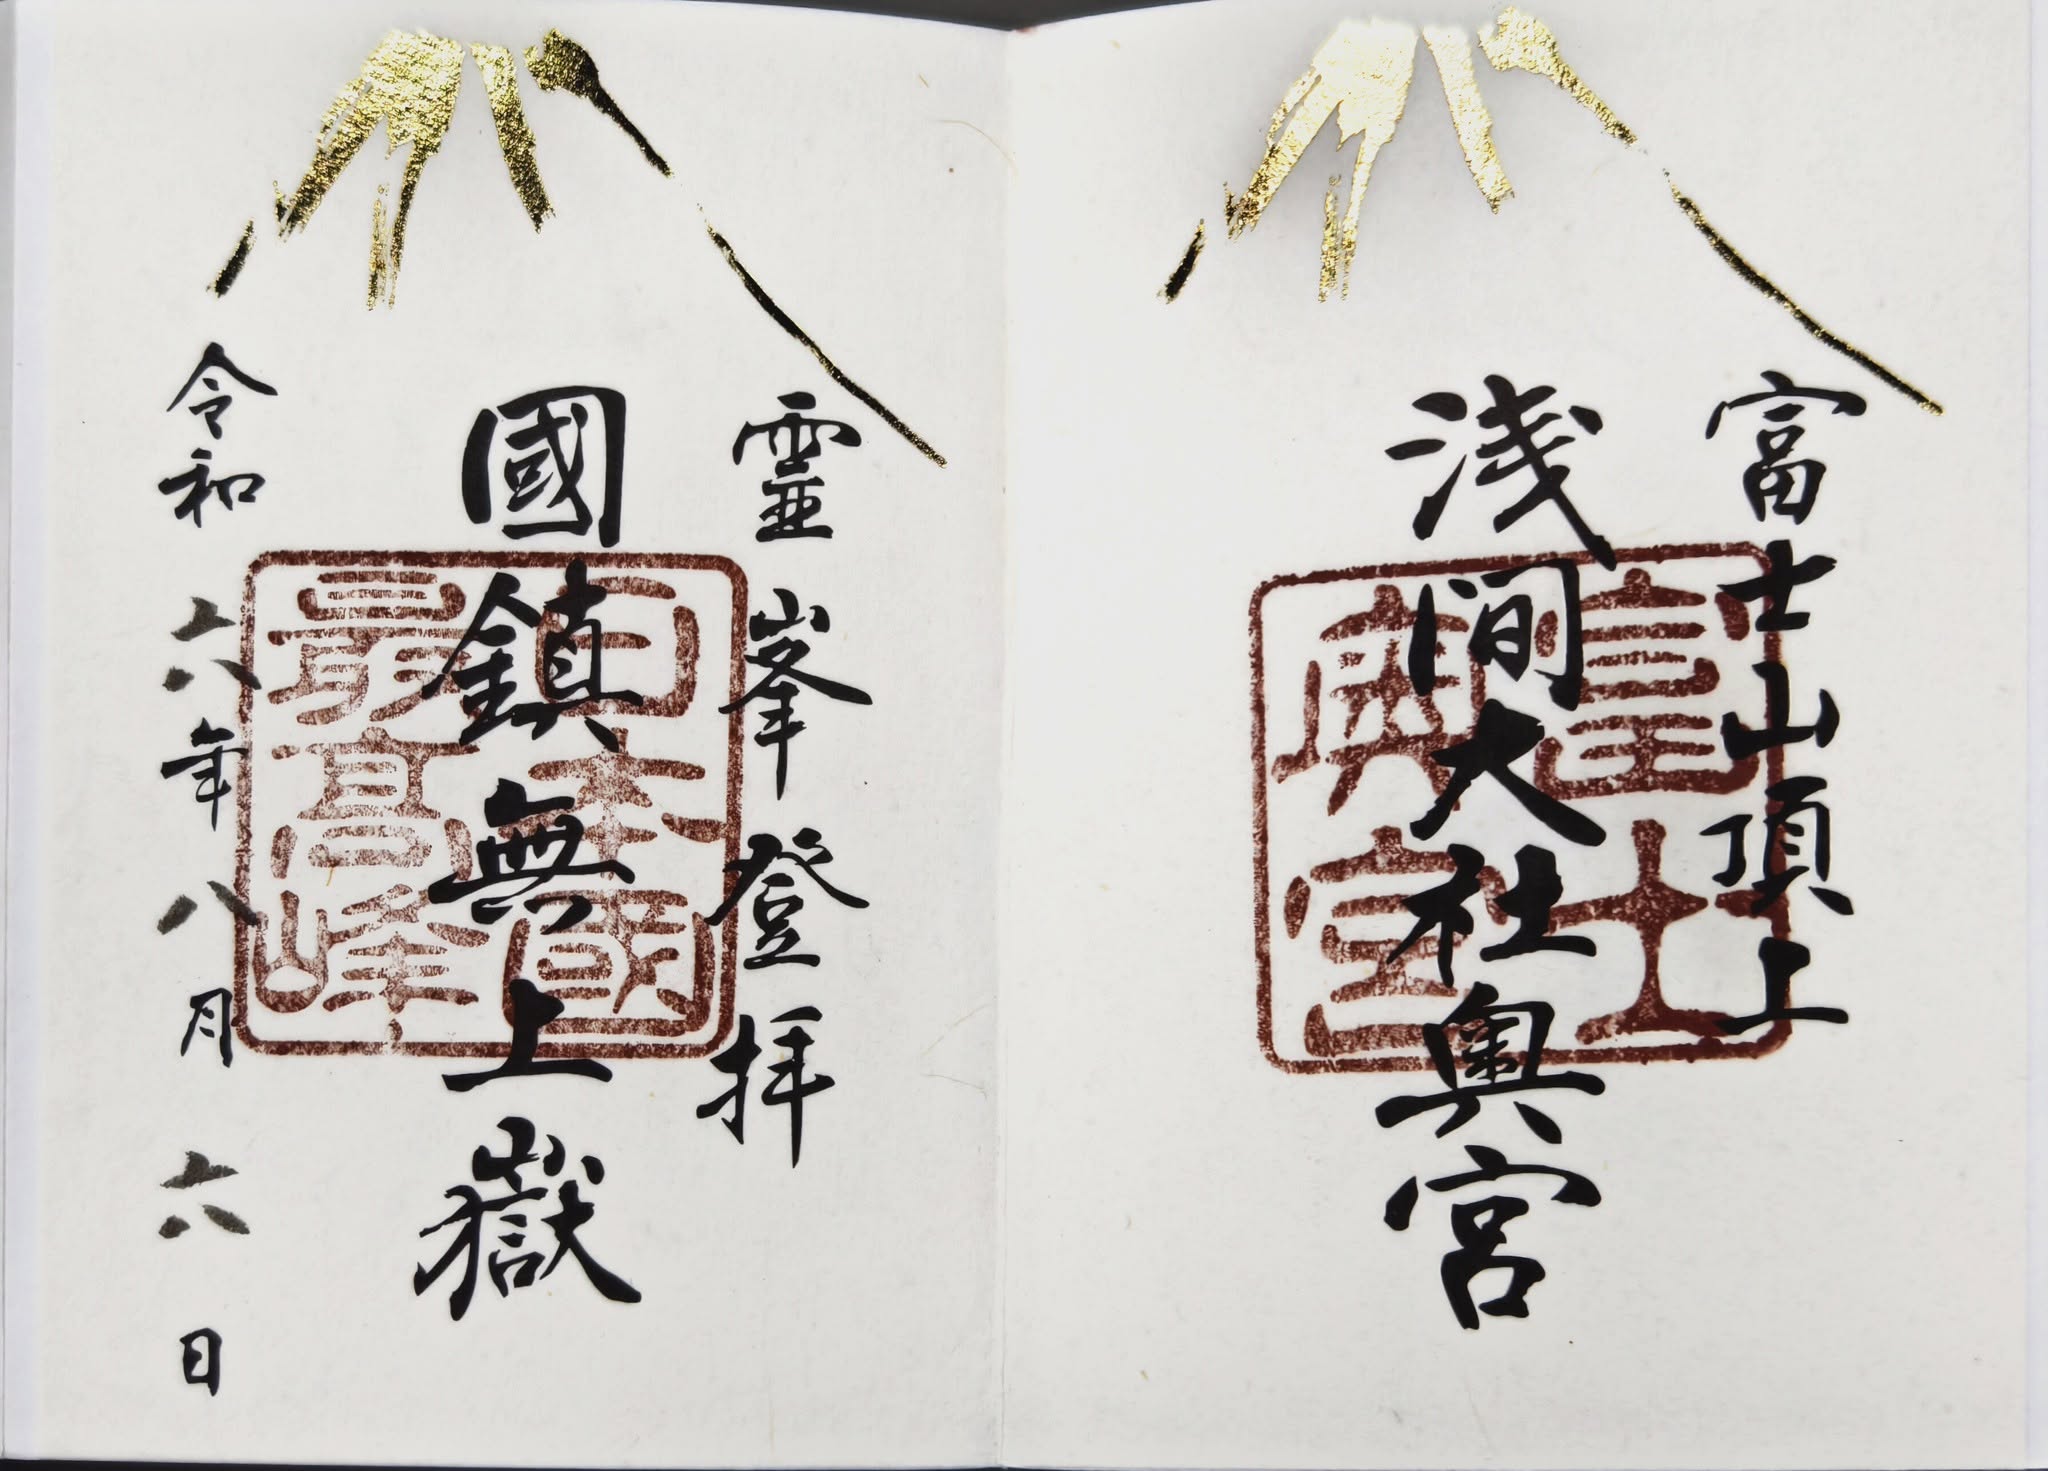 富士山頂上
浅間大社奥宮
富士
奥宮
靈峯登拝
國鎮無上嶽
日本國
最高峰
令和六年八月六日